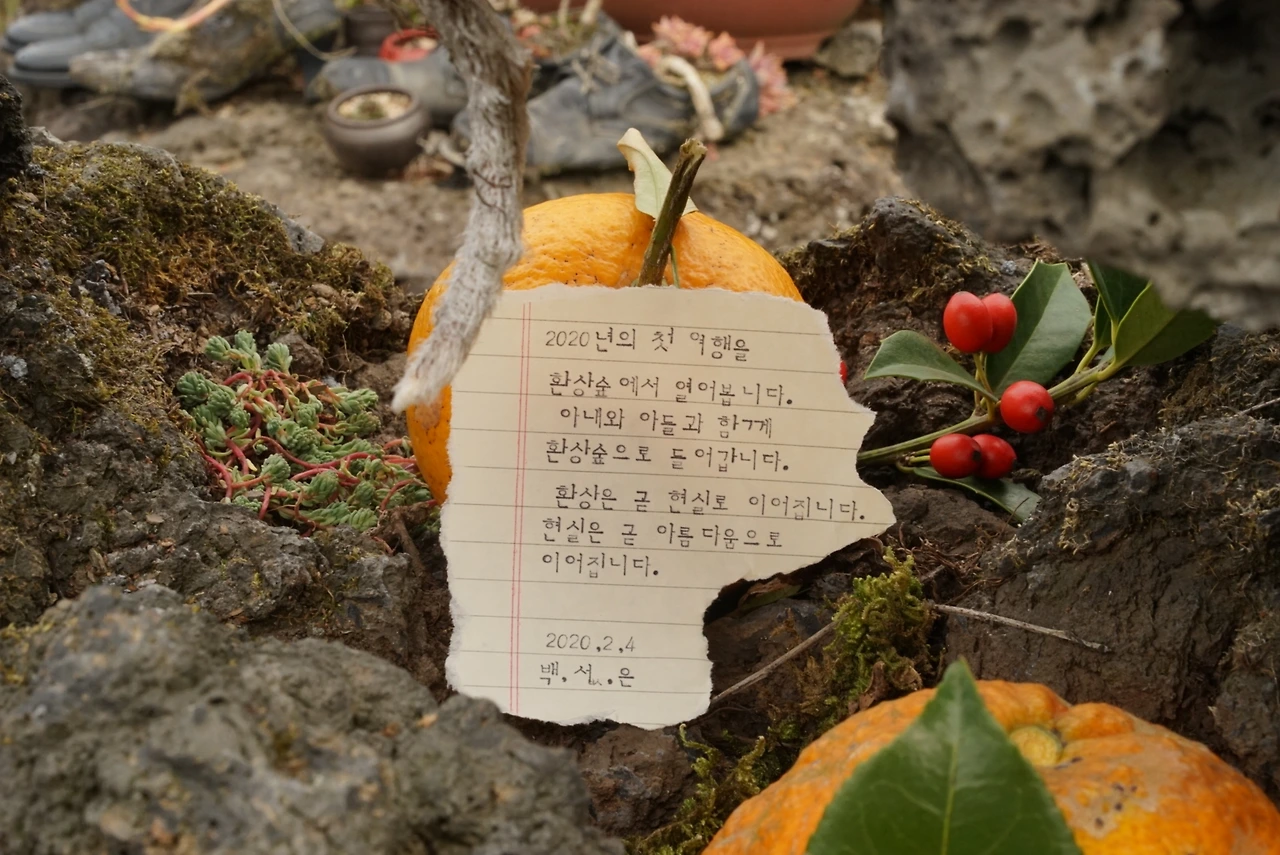 2020년의 첫 여행을
환상숲에서 열어봅니다.
아내와 아들과 함께
환상숲으로 들어갑니다.
환상은 곧 현실로 이어집니다.
현실은 곧 아름다움으로
이어집니다.
2020.2.4
백.서.은